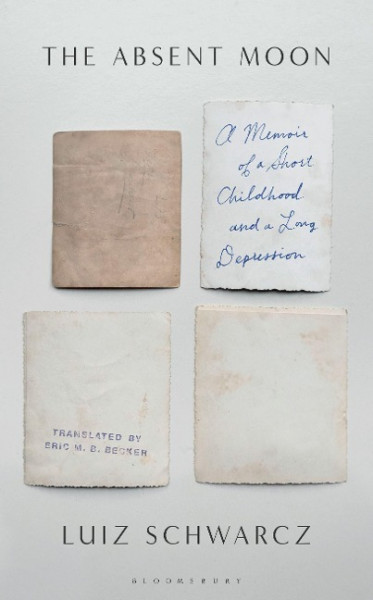 THE ABSENT MOON
A Memoir
of a Short
Childhood
and a Long
Depression
TRANSLATED BY
ERIC M. B. BECKER
LUIZ SCHWARCZ
BLOOMSBURY